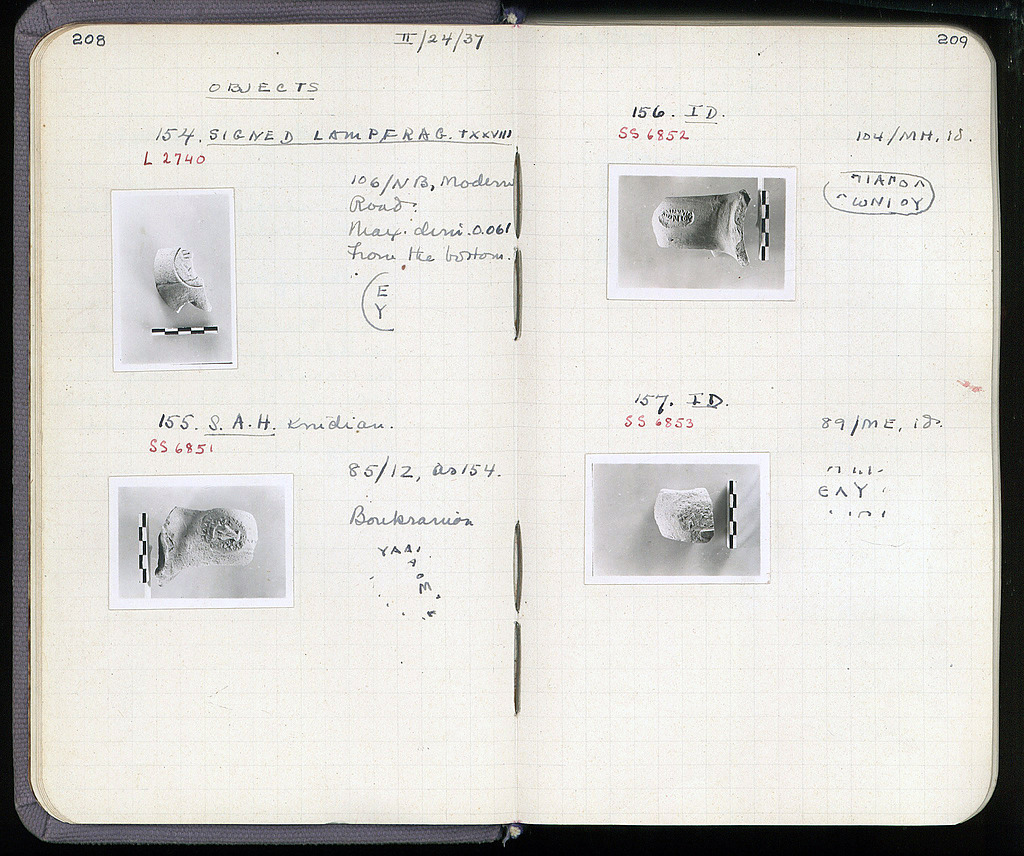 208
II/24/37
OBJECTS
154. SIGNED LAMP FRAG. TXXVIII
L 2740
106/NB, Modern
Road.
Max. dim. 0.061
From the bottom.
E
Y
155. S. A. H. Knidian.
SS 6851
85/IZ, as 154.
Boukranion
209
156. ID.
SS 6852
104/MH, id.
ΠΙΑΠΟΛ
ΛΩΝΙΟΥ
157. ID.
SS 6853
89/ME, id.
ЄΛΥ